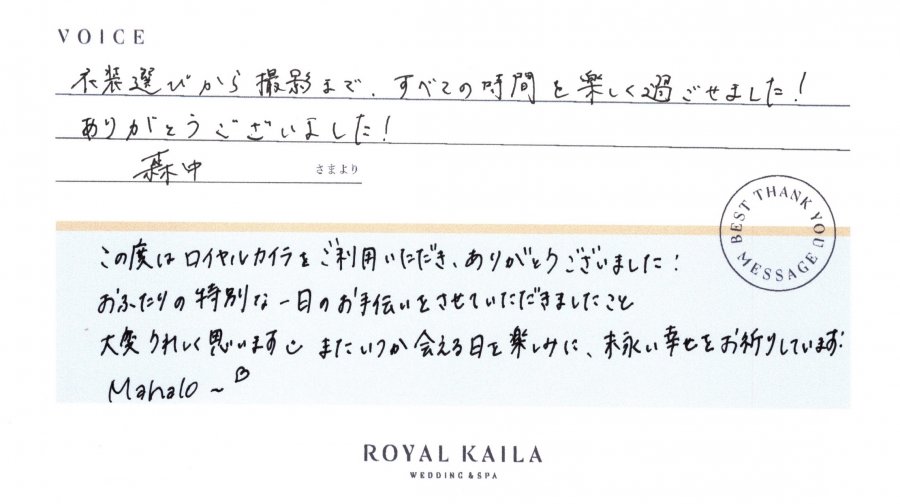 VOICE
衣装選びから撮影まで、すべての時間を楽しく過ごせました!
ありがとうございました!
森中
さまより
BEST THANK YOU MESSAGE
この度はロイヤルカイラをご利用いただき、ありがとうございました!
おふたりの特別な一日のお手伝いをさせていただきましたこと
大変うれしく思います またいつか会える日を楽しみに、末永い幸せをお祈りしています
Mahalo ~
ROYAL KAILA
WEDDING & SPA